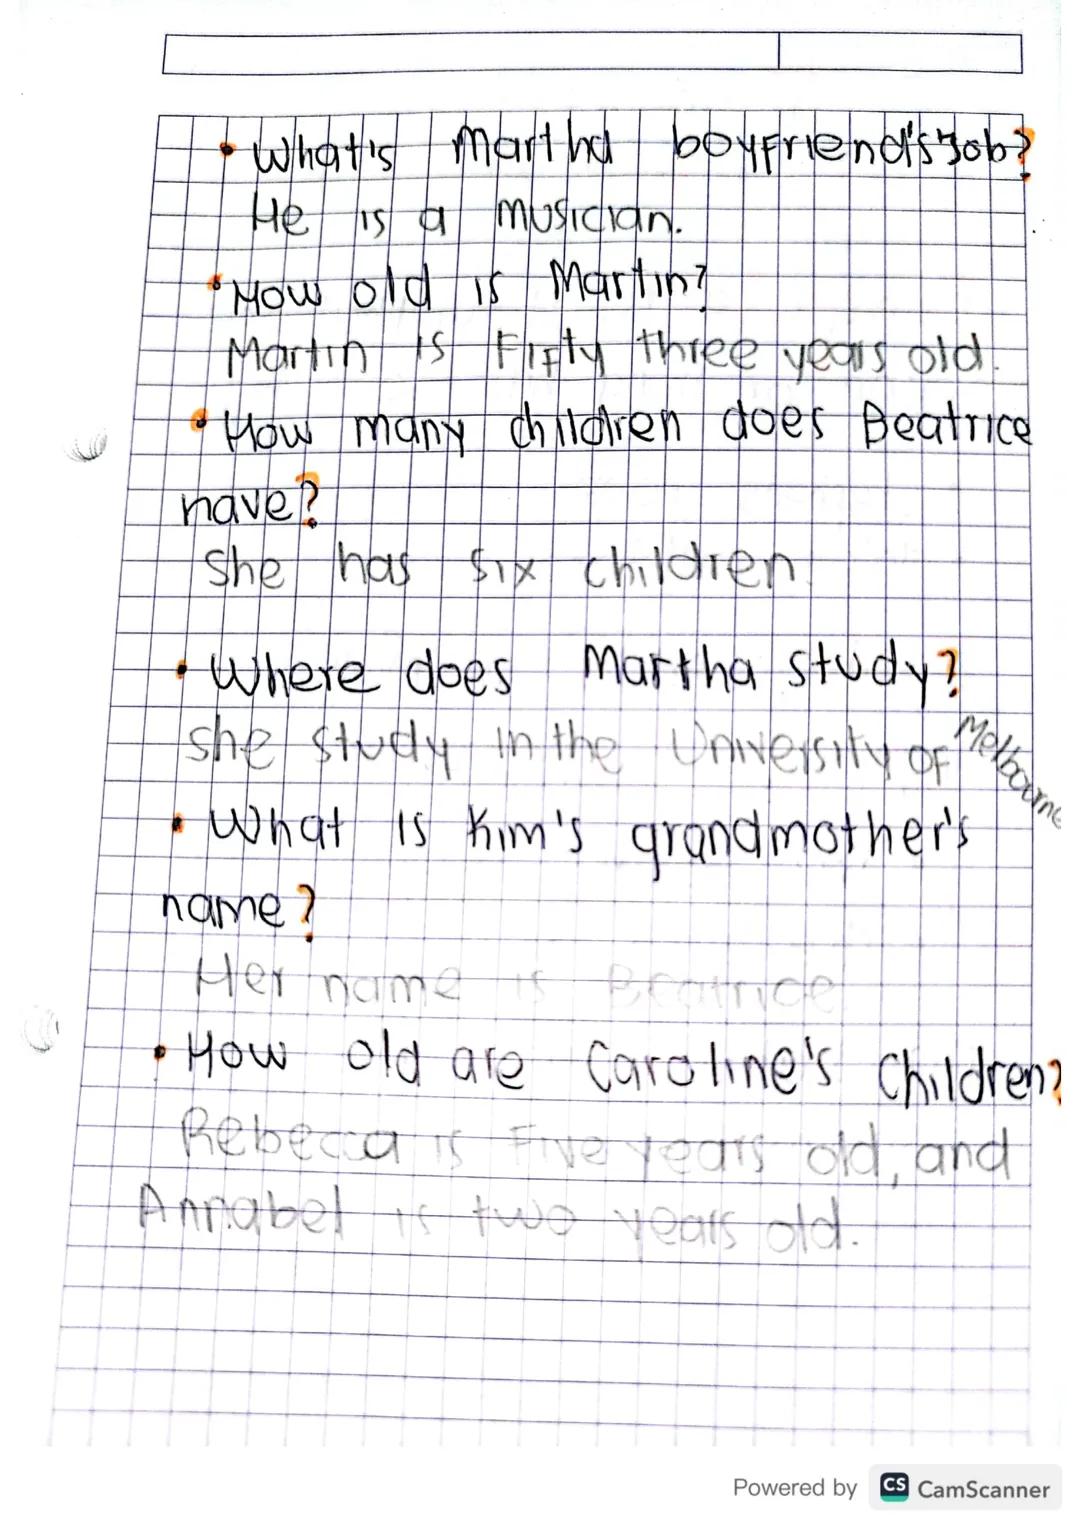 • What's Martha boyfriend's Job?
He is a musician.
• How old is Martin?
Martin is Fifty three years old.
• How many children does Beatrice
have?
She has six children
• Where does Martha study?
she study in the University of Melbourne
• What is Kim's grandmother's
name?
Her name is Beatrice
• How old are Caroline's children?
Rebecca is Five years old, and
Annabel is two years old.
Powered by CS CamScanner